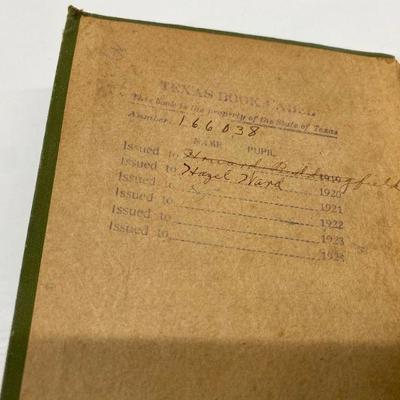 TEXAS BOOK LABEL
This book is the property of the State of Texas
A number, 166038
NAME PUPIL
Issued to Howard 1919
Issued to Hazel Ward 1920
Issued to 1921
Issued to 1922
Issued to 1923
Issued to 1924